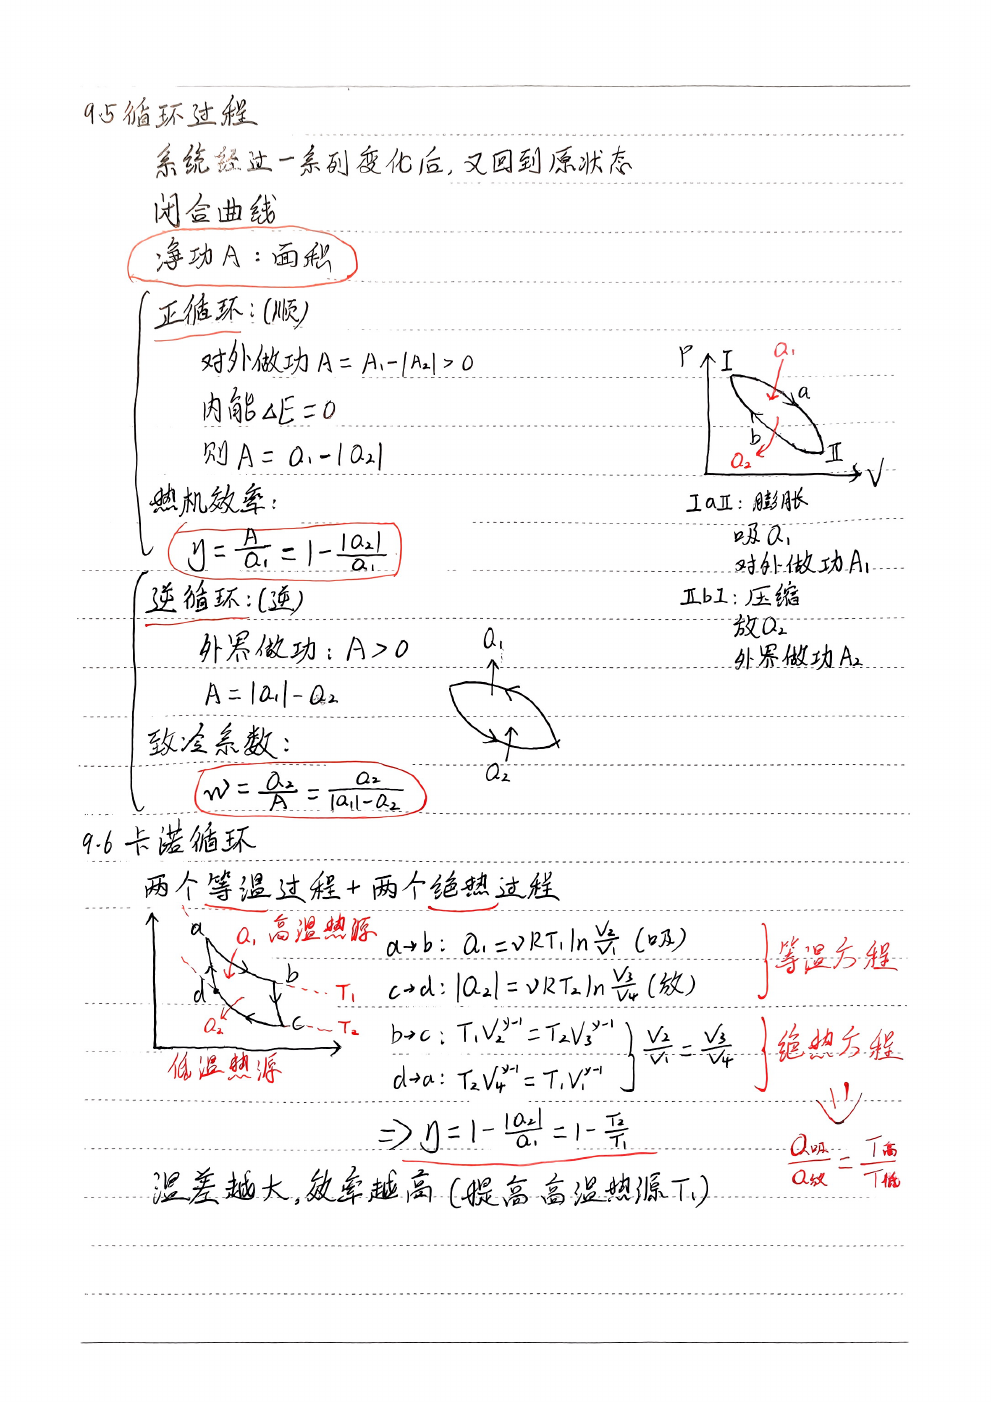 9.5 循环过程
系统经过一系列变化后,又回到原状态
闭合曲线
净功A:面积
正循环:(顺)
对外做功 A = A₁-|A₂| > 0
内能 △E = 0
则 A = Q₁-|Q₂|
热机效率:
η = A/Q₁ = 1-|Q₂|/Q₁
P
I
Q₁
a
b
Q₂
II
V
IaII:膨胀
吸Q₁
对外做功A₁
IIbI:压缩
放Q₂
外界做功A₂
逆循环:(逆)
外界做功:A>0
A = |Q₁|-Q₂
致冷系数:
w = Q₂/A = Q₂/(|Q₁|-Q₂)
Q₁
Q₂
9.6 卡诺循环
两个等温过程+两个绝热过程
a
Q₁ 高温热源
b
d
T₁
Q₂
c
T₂
低温热源
a→b: Q₁ = νRT₁ln V₂/V₁ (吸)
c→d: |Q₂| = νRT₂ln V₃/V₄ (放)
等温方程
b→c: T₁V₂^γ-1 = T₂V₃^γ-1
d→a: T₂V₄^γ-1 = T₁V₁^γ-1
V₂/V₁ = V₃/V₄
绝热方程
⇒ η = 1-|Q₂|/Q₁ = 1-T₂/T₁
Q吸/Q放 = T高/T低
温差越大,效率越高(提高高温热源T₁)